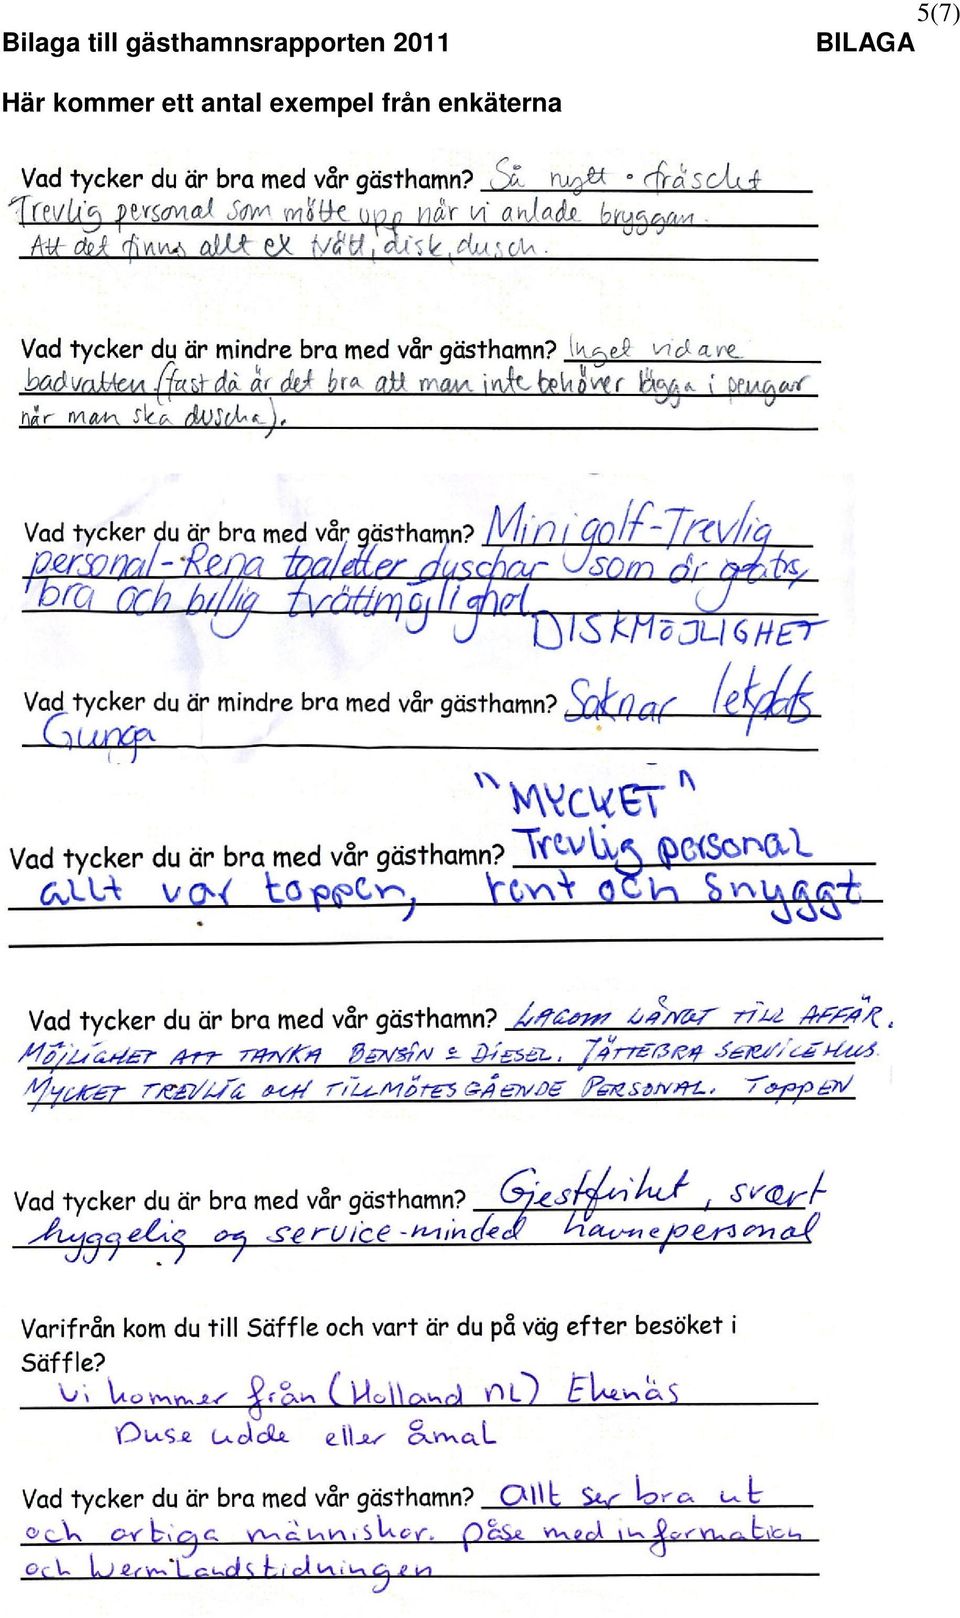 5(7)
Bilaga till gästhamnsrapporten 2011 BILAGA
Här kommer ett antal exempel från enkäterna
Vad tycker du är bra med vår gästhamn? Så nytt o fräscht
Trevlig personal som mötte upp när vi anlade bryggan.
Att det finns allt ex tvätt, disk, dusch.
Vad tycker du är mindre bra med vår gästhamn? Inget vidare
badvatten (fast då är det bra att man inte behöver lägga i pengar
när man ska duscha).
Vad tycker du är bra med vår gästhamn? Minigolf-Trevlig
personal-Rena toaletter duschar som är gratis,
bra och billig tvättmöjlighet
DISKMÖJLIGHET
Vad tycker du är mindre bra med vår gästhamn? Saknar lekplats
Gunga
"MYCKET"
Vad tycker du är bra med vår gästhamn? Trevlig personal
allt var toppen, rent och snyggt
Vad tycker du är bra med vår gästhamn? LAGOM LÅNGT TILL AFFÄR.
MÖJLIGHET ATT TANKA BENSIN & DIESEL. JÄTTEBRA SERVICEHUS.
MYCKET TREVLIG OCH TILLMÖTESGÅENDE PERSONAL. TOPPEN
Vad tycker du är bra med vår gästhamn? Gjestfrihet, svært
hyggelig og service-minded havnepersonal
Varifrån kom du till Säffle och vart är du på väg efter besöket i
Säffle?
Vi kommer från (Holland NL) Ekenäs
Duse udde eller åmal
Vad tycker du är bra med vår gästhamn? Allt ser bra ut
och artiga människor. påse med information
och Wermlandstidningen